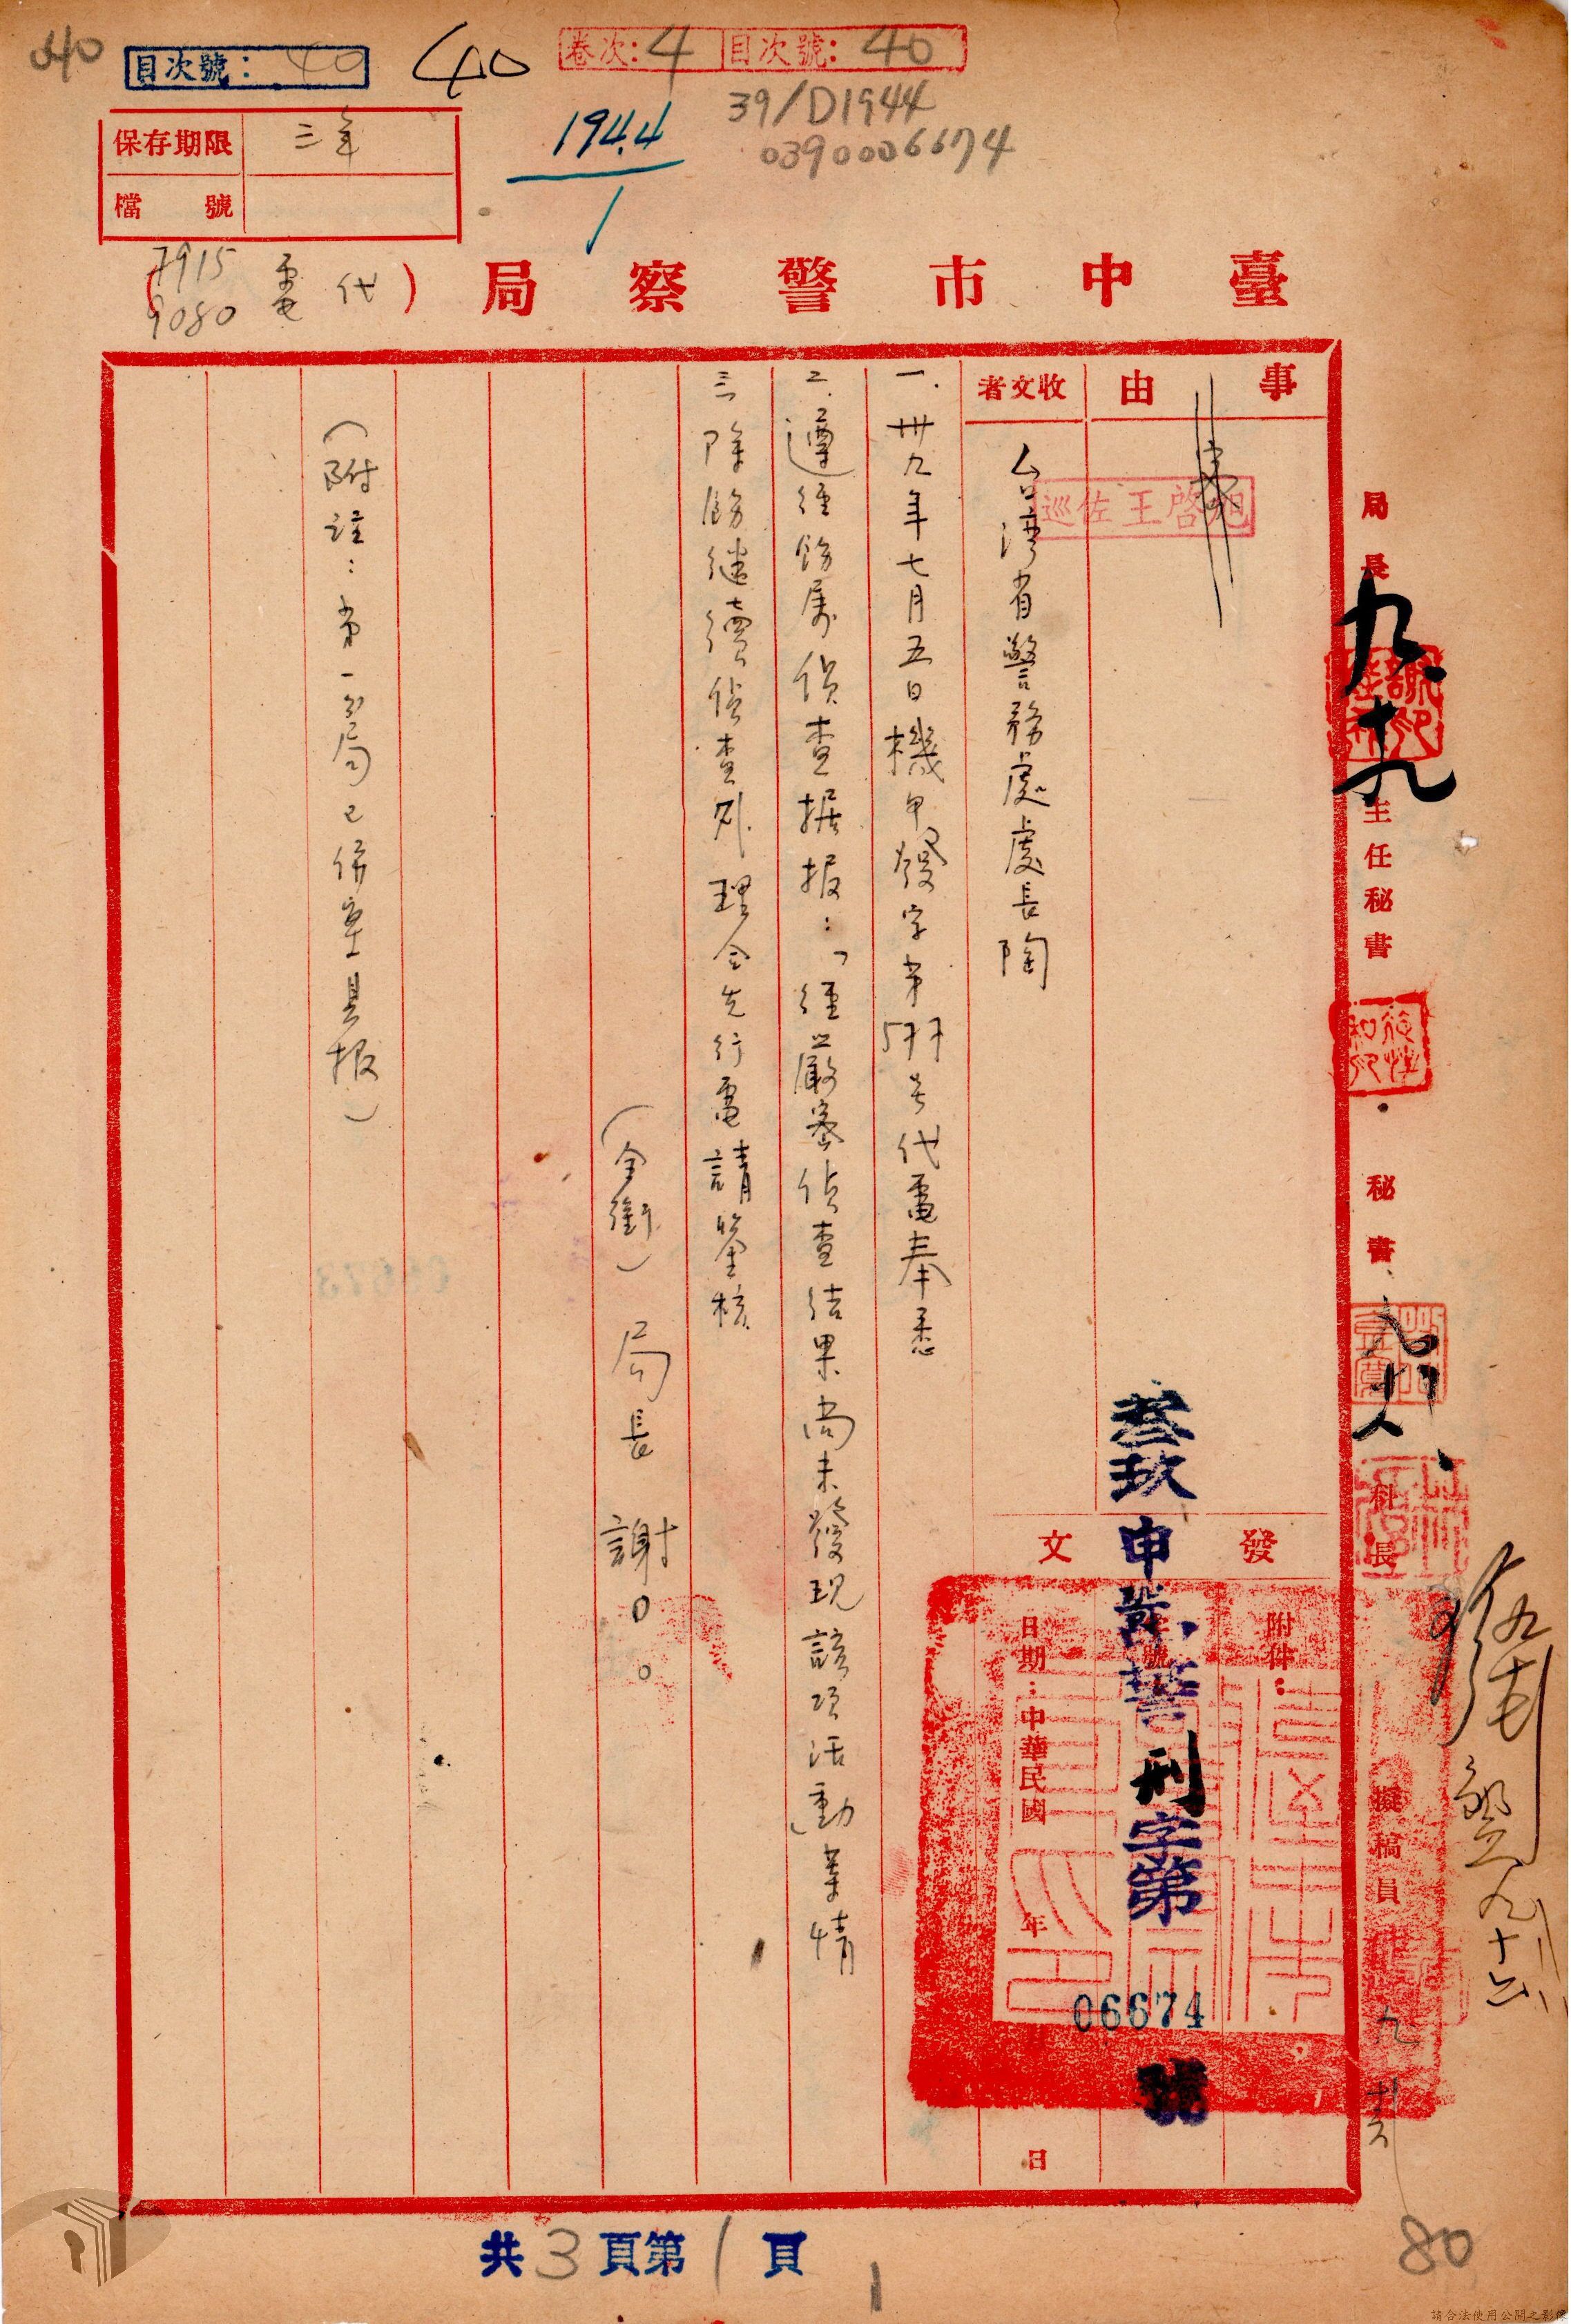 40
目次號：40
40
卷次：4 目次號：40
39/D1944
0390006674
194.4
1
保存期限 三年
檔號
臺中市警察局（代電）
7915
9080
事由
收文者
台湾省警務處處長陶
巡佐王啓
發文
附件：
號
日期：中華民國 年 日
叁玖申 警刑字第
06674
號
一.卅九年七月五日機甲發字第577号代電奉悉
二.遵經飭属偵查据报：「經严嚴密偵查結果尚未發現該項活動事情
三 除飭継續偵查外理合先行電請鑒核
（全銜）局長 謝○○
（附註：第一分局已併案具报）
局長
九.十九
主任秘書
秘書
科長
擬稿員
九 十六
共3頁第1頁
1
80
請合法使用公開之影像